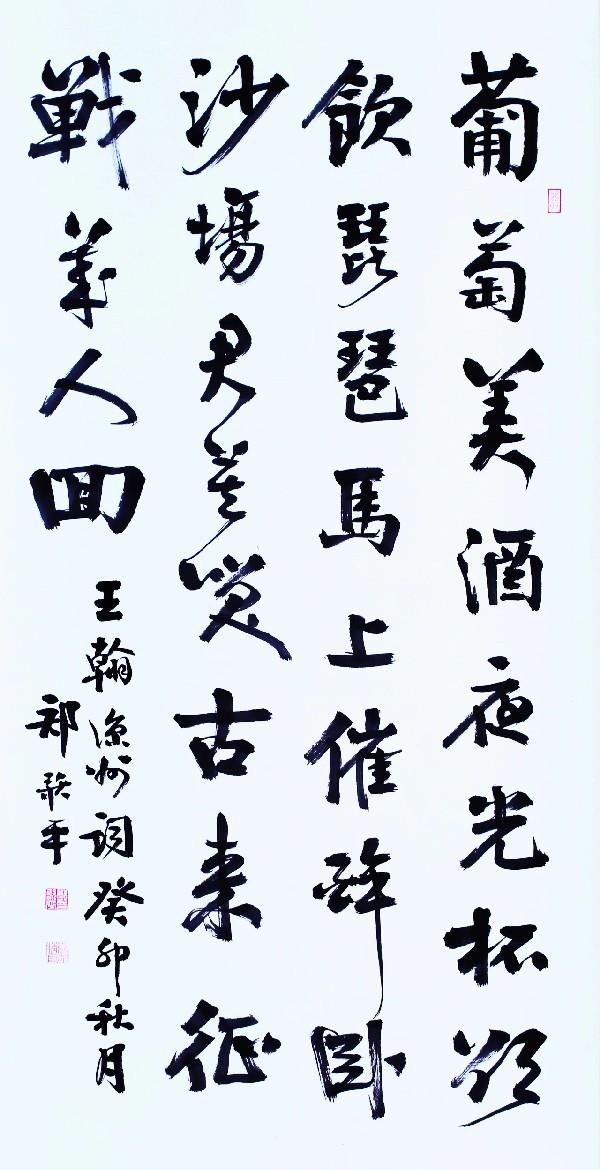 葡萄美酒夜光杯欲
飲琵琶馬上催酔卧
沙場君莫笑古来征
戦幾人回
王翰凉州詞癸卯秋月
郑平